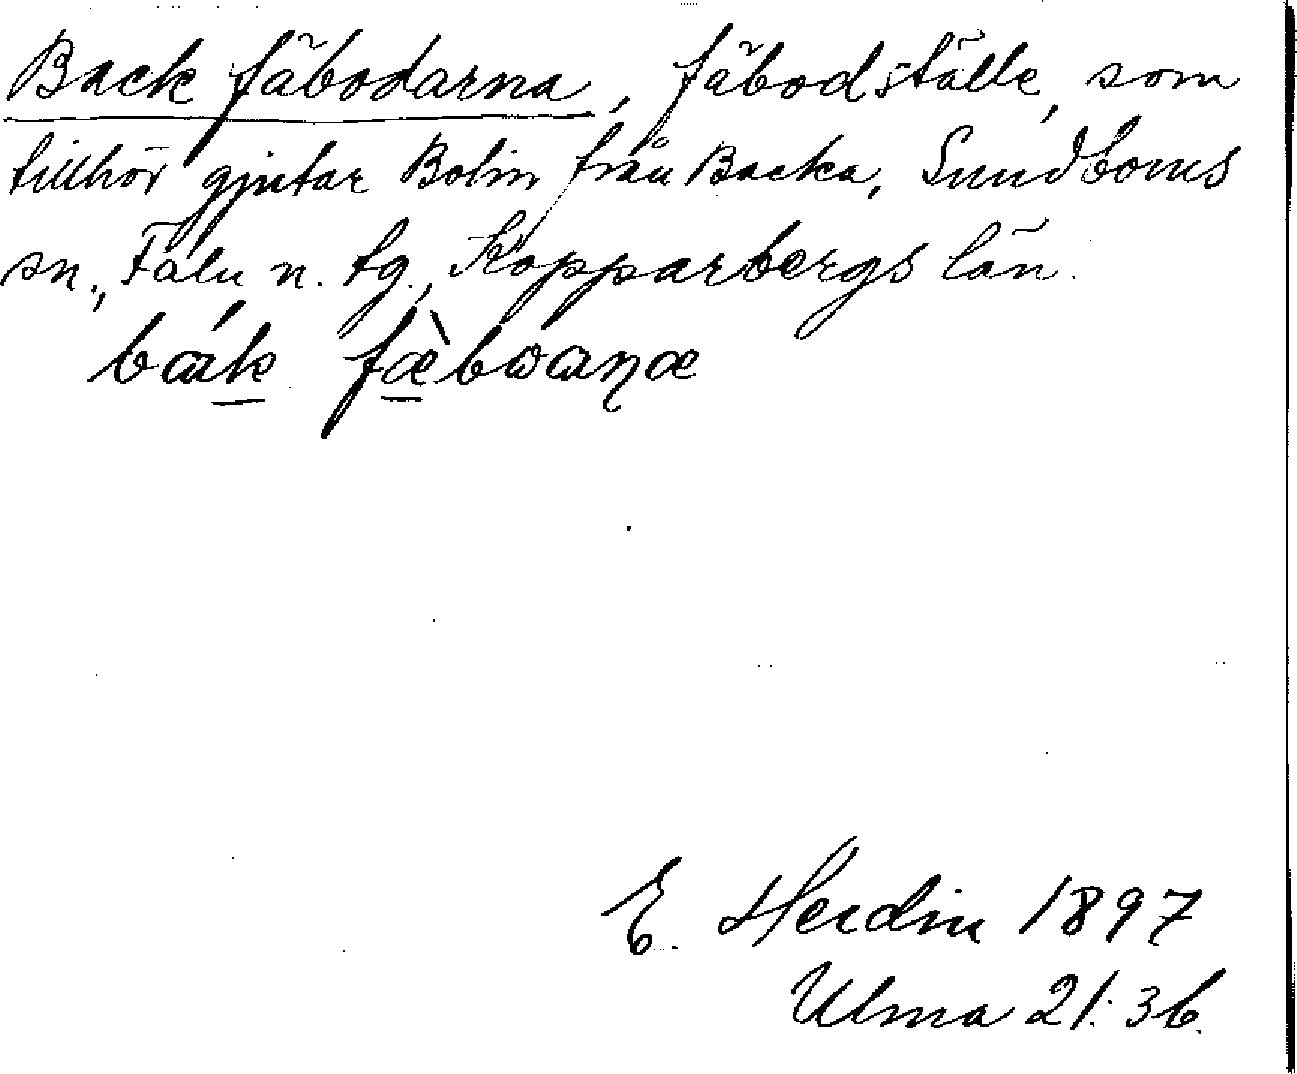 Back fäbodarna, fäbodställe, som
tillhör gjutar Bolin från Backa, Sundborns
sn., Falu n. tg., Kopparbergs län.
bák fæ̀bωaꞃæ
E. Herdin 1897
Ulma 21:36.